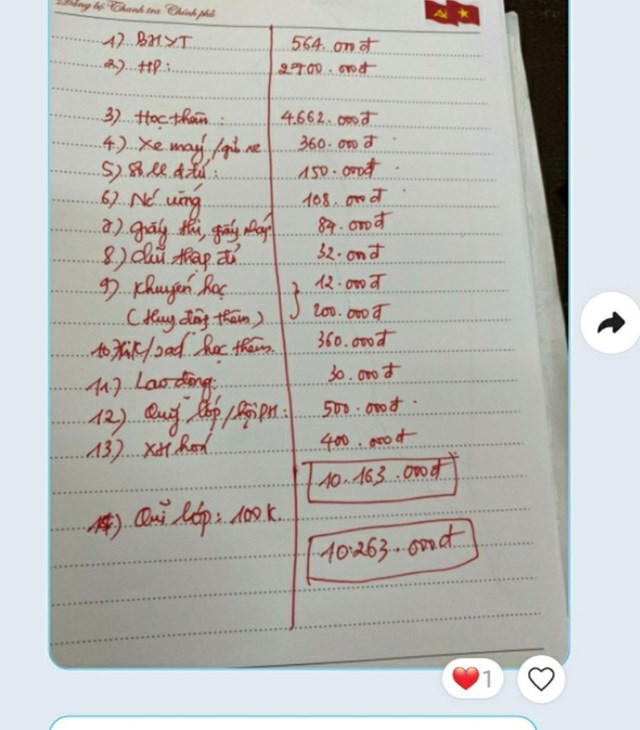 Đảng bộ Thanh tra Chính phủ
1) BHYT 564.000đ
2) HP: 2700.000đ
3) Học thêm: 4.662.000đ
4) Xe máy/gửi xe 360.000đ
5) 150.000đ
6) Nc uống 108.000đ
7) giấy thi, giấy nháp 84.000đ
8) chữ thập đỏ 32.000đ
9) Khuyến học 12.000đ
(Huy động thêm) 200.000đ
10. học thêm 360.000đ
11) Lao động: 30.000đ
12) Quỹ lớp/hội PH: 500.000đ
13) XH hoá 400.000đ
10.163.000đ
14) Quĩ lớp: 100K.
10.263.000đ
1